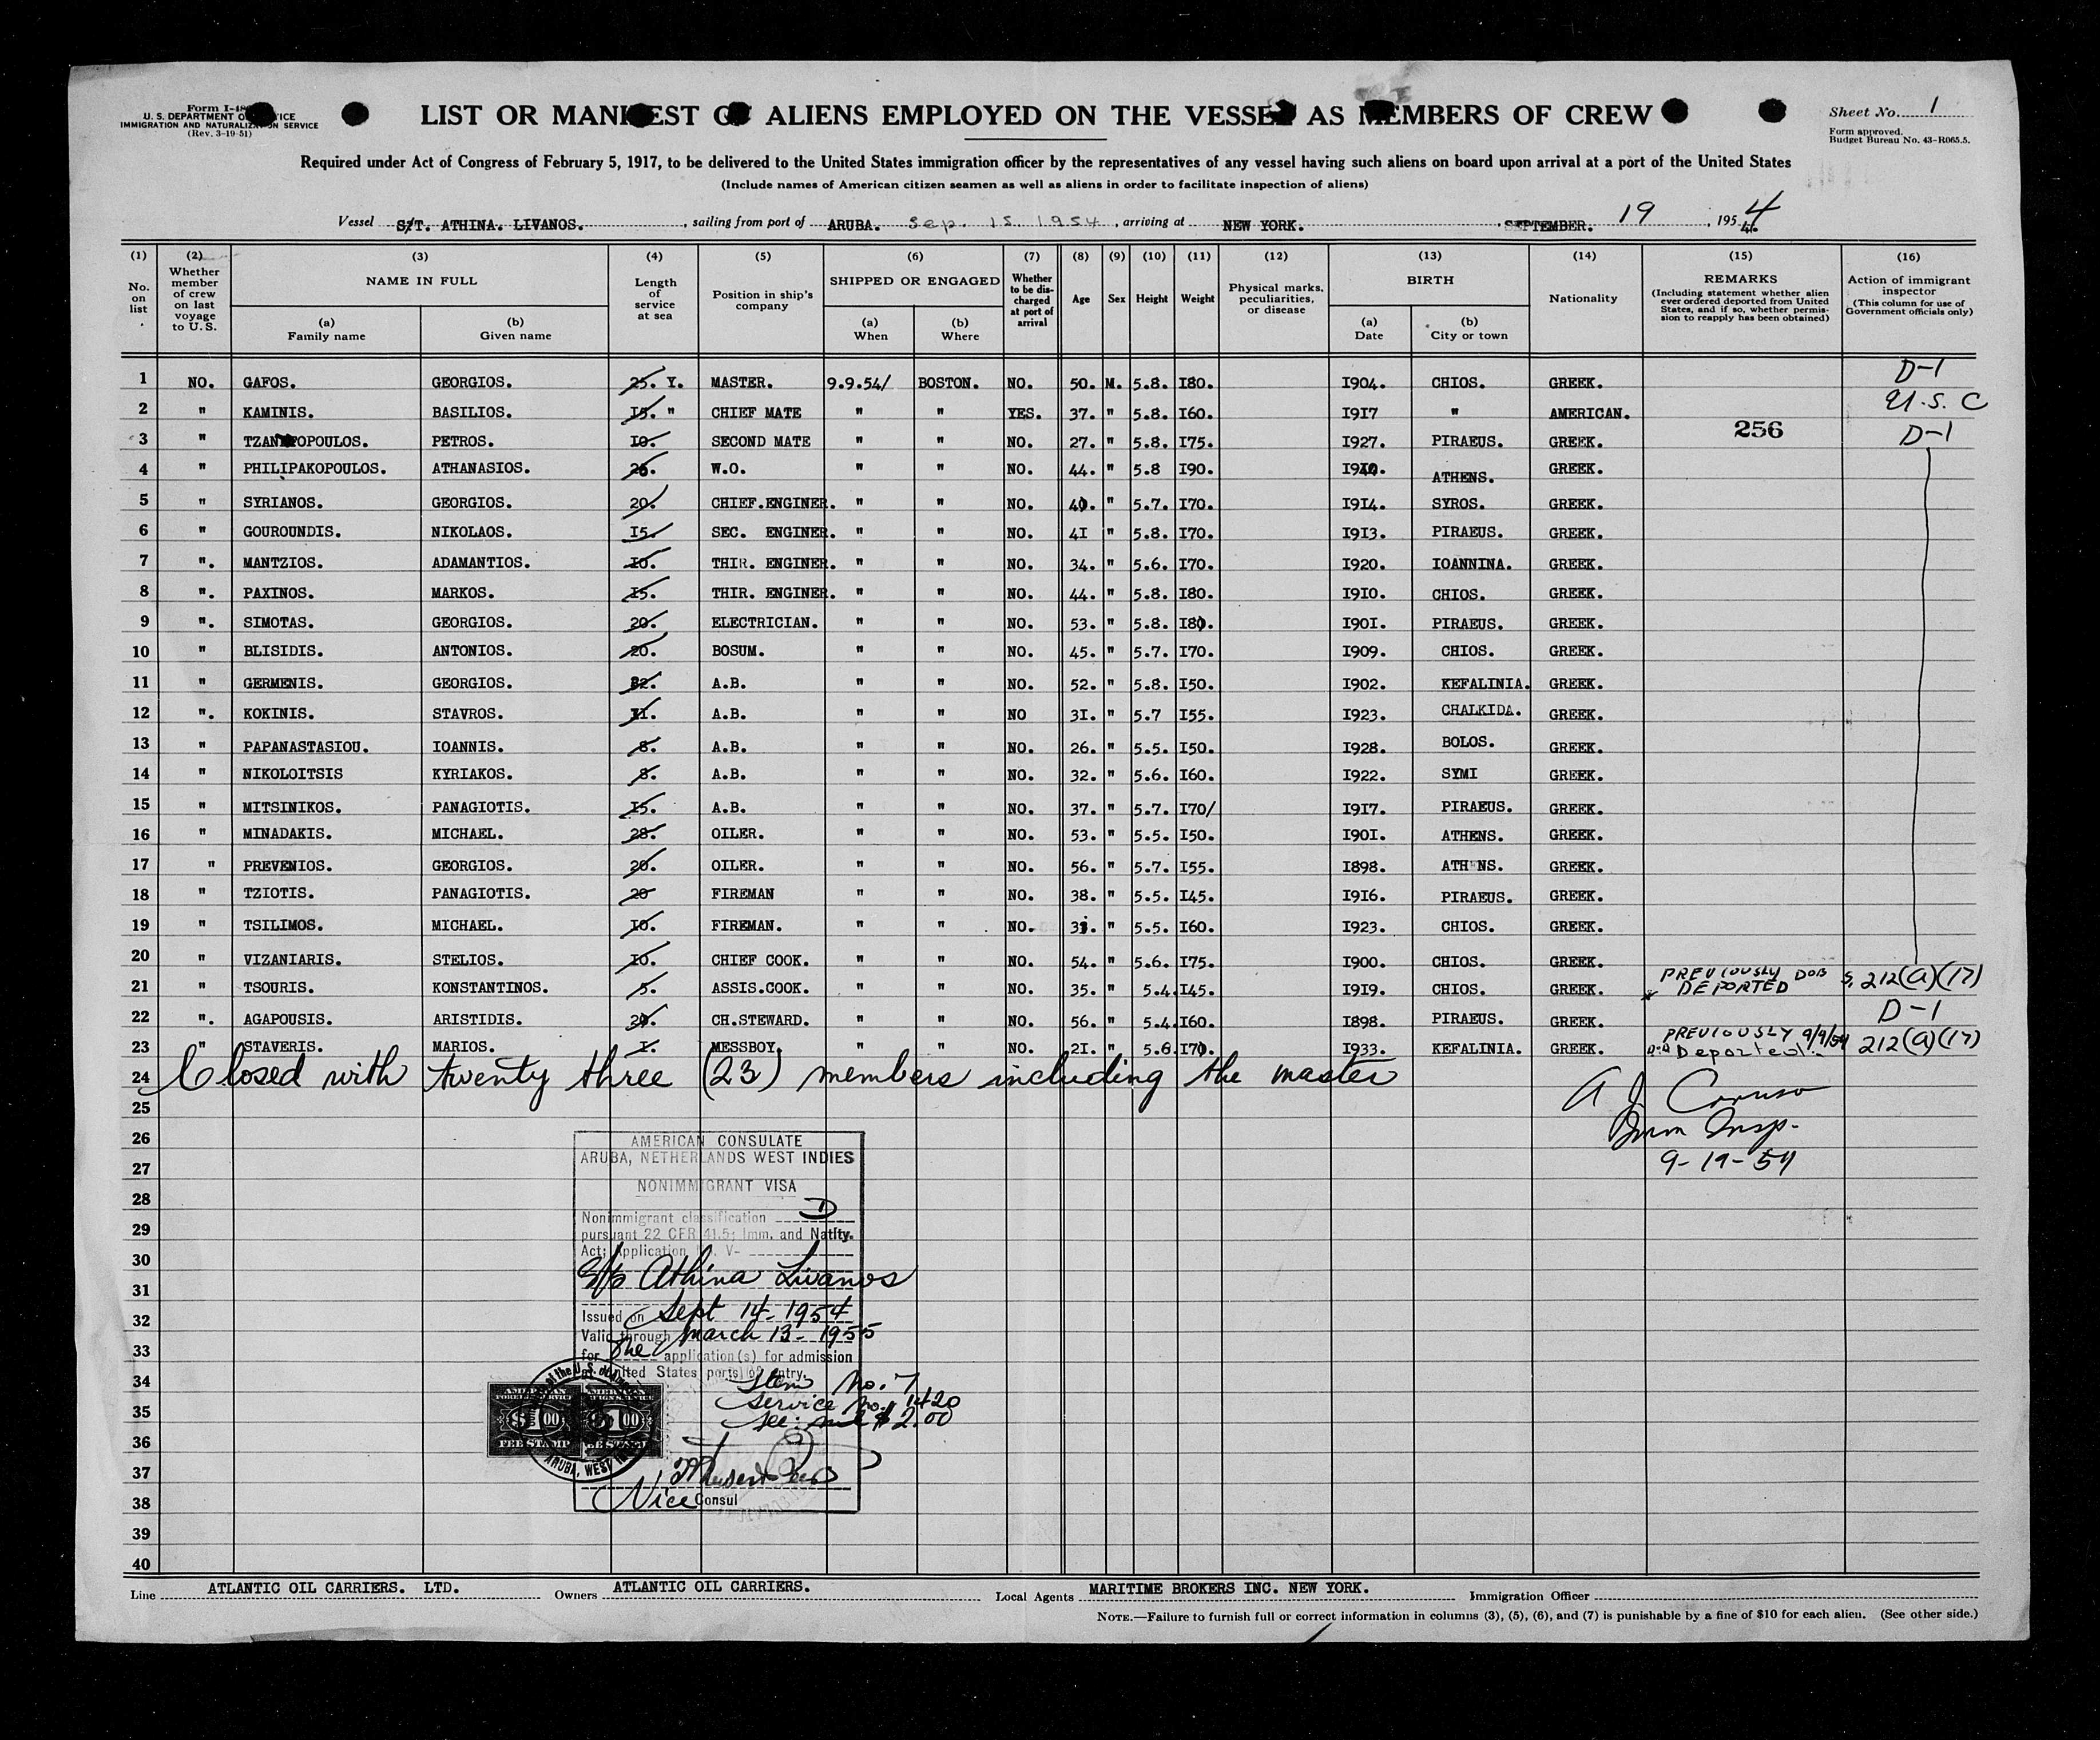 Form I-48
U. S. DEPARTMENT OF JUSTICE
IMMIGRATION AND NATURALIZATION SERVICE
(Rev. 3-19-51)
LIST OR MANIFEST OF ALIENS EMPLOYED ON THE VESSEL AS MEMBERS OF CREW
Sheet No. 1
Form approved.
Budget Bureau No. 43-R065.5.
Required under Act of Congress of February 5, 1917, to be delivered to the United States immigration officer by the representatives of any vessel having such aliens on board upon arrival at a port of the United States
(Include names of American citizen seamen as well as aliens in order to facilitate inspection of aliens)
Vessel S/T. ATHINA. LIVANOS. , sailing from port of ARUBA. Sep. 15 1954 , arriving at NEW YORK. , SEPTEMBER. 19 , 1954
(1) (2) (3) (4) (5) (6) (7) (8) (9) (10) (11) (12) (13) (14) (15) (16)
No. on list
Whether member of crew on last voyage to U. S.
NAME IN FULL
(a) Family name
(b) Given name
Length of service at sea
Position in ship's company
SHIPPED OR ENGAGED
(a) When
(b) Where
Whether to be discharged at port of arrival
Age
Sex
Height
Weight
Physical marks, peculiarities, or disease
BIRTH
(a) Date
(b) City or town
Nationality
REMARKS
(Including statement whether alien ever ordered deported from United States, and if so, whether permission to reapply has been obtained)
Action of immigrant inspector
(This column for use of Government officials only)
1 NO. GAFOS. GEORGIOS. 25. Y. MASTER. 9.9.54/ BOSTON. NO. 50. M. 5.8. I80. I904. CHIOS. GREEK. D-1
2 " KAMINIS. BASILIOS. I5. " CHIEF MATE " " YES. 37. " 5.8. I60. I917 " AMERICAN. U.S.C
3 " PETROS. I0. SECOND MATE " " NO. 27. " 5.8. I75. I927. PIRAEUS. GREEK. 256 D-1
4 " PHILIPAKOPOULOS. ATHANASIOS. 26. W.O. " " NO. 44. " 5.8 I90. ATHENS. GREEK.
5 " SYRIANOS. GEORGIOS. 20. CHIEF.ENGINER. " " NO. 40. " 5.7. I70. I914. SYROS. GREEK.
6 " GOUROUNDIS. NIKOLAOS. I5. SEC. ENGINER. " " NO. 4I " 5.8. I70. I913. PIRAEUS. GREEK.
7 ". MANTZIOS. ADAMANTIOS. I0. THIR. ENGINER. " " NO. 34. " 5.6. I70. I920. IOANNINA. GREEK.
8 ". PAXINOS. MARKOS. I5. THIR. ENGINER. " " NO. 44. " 5.8. I80. I910. CHIOS. GREEK.
9 ". SIMOTAS. GEORGIOS. 20. ELECTRICIAN. " " NO. 53. " 5.8. I80. I90I. PIRAEUS. GREEK.
10 " BLISIDIS. ANTONIOS. 20. BOSUM. " " NO. 45. " 5.7. I70. I909. CHIOS. GREEK.
11 " GERMENIS. GEORGIOS. A.B. " " NO. 52. " 5.8. I50. I902. KEFALINIA. GREEK.
12 ". KOKINIS. STAVROS. A.B. " " NO 3I. " 5.7 I55. I923. CHALKIDA. GREEK.
13 " PAPANASTASIOU. IOANNIS. 8. A.B. " " NO. 26. " 5.5. I50. I928. BOLOS. GREEK.
14 " NIKOLOITSIS KYRIAKOS. 8. A.B. " " NO. 32. " 5.6. I60. I922. SYMI GREEK.
15 " MITSINIKOS. PANAGIOTIS. I5. A.B. " " NO. 37. " 5.7. I70/ I917. PIRAEUS. GREEK.
16 " MINADAKIS. MICHAEL. 28. OILER. " " NO. 53. " 5.5. I50. I90I. ATHENS. GREEK.
17 " PREVENIOS. GEORGIOS. 20. OILER. " " NO. 56. " 5.7. I55. I898. ATHENS. GREEK.
18 " TZIOTIS. PANAGIOTIS. 20 FIREMAN " " NO. 38. " 5.5. I45. I916. PIRAEUS. GREEK.
19 " TSILIMOS. MICHAEL. I0. FIREMAN. " " NO. " 5.5. I60. I923. CHIOS. GREEK.
20 " VIZANIARIS. STELIOS. I0. CHIEF COOK. " " NO. 54. " 5.6. I75. I900. CHIOS. GREEK.
21 " TSOURIS. KONSTANTINOS. 5. ASSIS.COOK. " " NO. 35. " 5.4. I45. I919. CHIOS. GREEK. PREVIOUSLY DEPORTED 212(a)(17)
22 ". AGAPOUSIS. ARISTIDIS. 20. CH.STEWARD. " " NO. 56. " 5.4. I60. I898. PIRAEUS. GREEK. D-1
23 " STAVERIS. MARIOS. I. MESSBOY. " " NO. 2I. " 5.6. I70. I933. KEFALINIA. GREEK. PREVIOUSLY 9/9/54 Deported. 212(a)(17)
24 Closed with twenty three (23) members including the master
25 A J Caruso
26 Imm Insp.
27 9-19-54
28
29
30
31
32
33
34
35
36
37
38
39
40
AMERICAN CONSULATE
ARUBA, NETHERLANDS WEST INDIES
NONIMMIGRANT VISA
Nonimmigrant classification D
pursuant 22 CFR 41.5; Imm. and Natlty.
Act; Application No. V-
S/S Athina Livanos
Issued on Sept 14 - 1954
Valid through March 13 - 1955
for One application(s) for admission
United States ports of entry.
Item No. 7
Service No. 1420
Fee: $2.00
AMERICAN FOREIGN SERVICE $1.00 FEE STAMP
AMERICAN FOREIGN SERVICE $1.00 FEE STAMP
ARUBA, WEST
Vice Consul
Line ATLANTIC OIL CARRIERS. LTD. Owners ATLANTIC OIL CARRIERS. Local Agents MARITIME BROKERS INC. NEW YORK. Immigration Officer
NOTE.—Failure to furnish full or correct information in columns (3), (5), (6), and (7) is punishable by a fine of $10 for each alien. (See other side.)